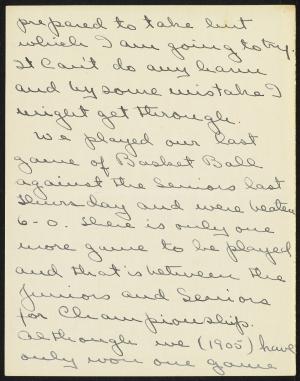 prepared to take but
which I am going to try.
It can't do any harm
and by some mistake I
might get through.
We played our last
game of Basket Ball
against the Seniors last
Thursday and were beaten
6-0. There is only one
more game to be played
and that is between the
Juniors and Seniors
for Championship.
Although we (1905) have
only won one game